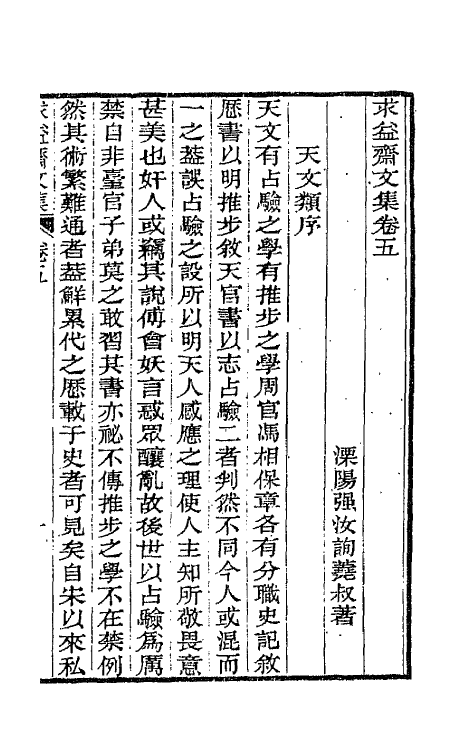 求益齋文集卷五
溧陽强汝詢蕘叔著
天文類序
天文有占驗之學有推步之學周官馮相保章各有分職史記敘
歴書以明推步敘天官書以志占驗二者判然不同今人或混而
一之葢誤占驗之設所以明天人感應之理使人主知所敬畏意
甚美也奸人或竊其說傅會妖言惑眾釀亂故後世以占驗爲厲
禁自非臺官子弟莫之敢習其書亦祕不傳推步之學不在禁例
然其術繁難通者葢鮮累代之歴載于史者可見矣自朱以來私
求益齋文集 卷五 一